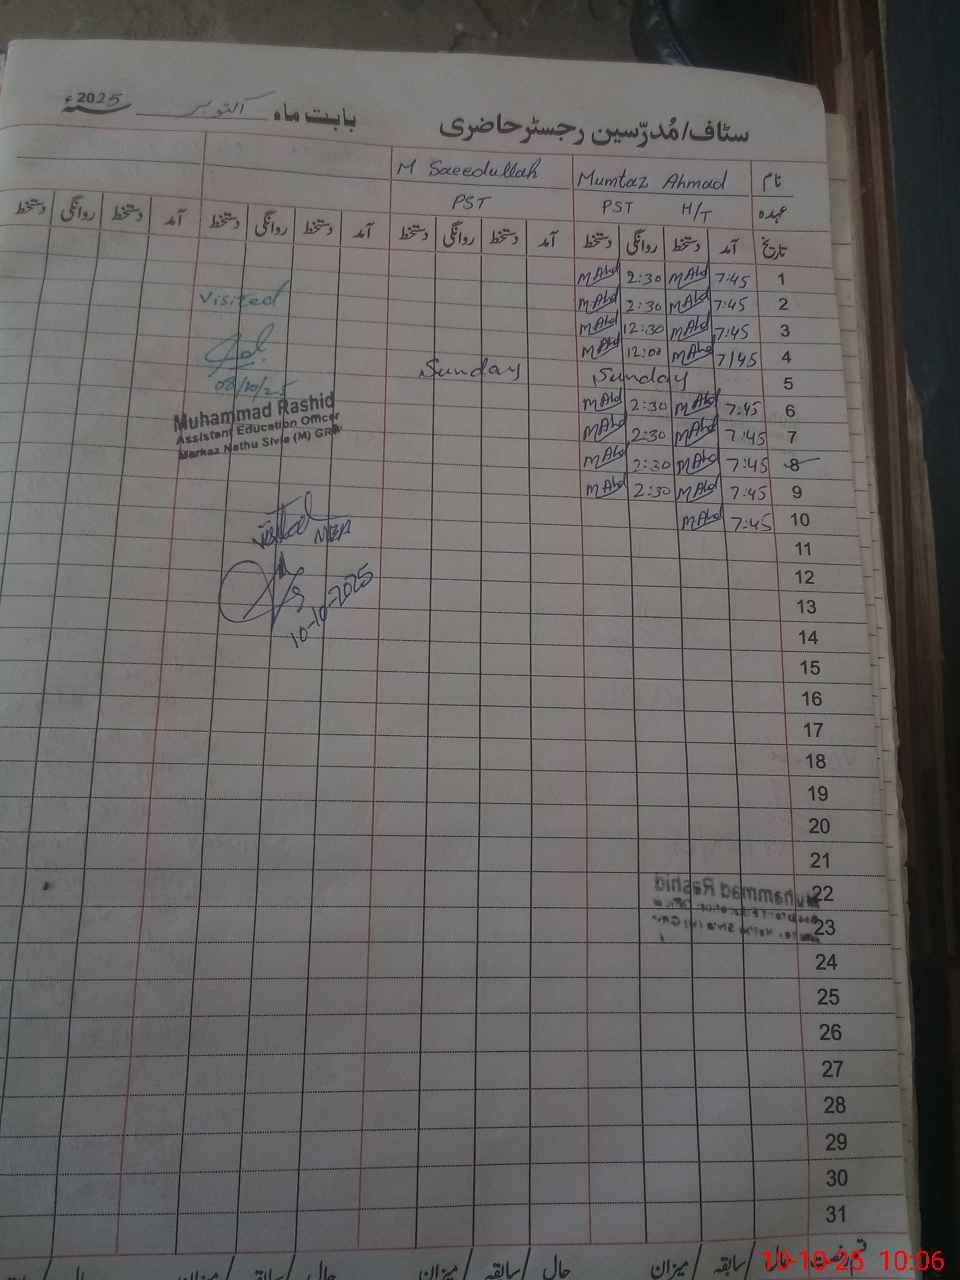 سٹاف/مُدرّسین رجسٹر حاضری بابت ماہ اکتوبر 2025ء
نام Mumtaz Ahmad M Saeedullah
عہدہ H/T PST PST
تاریخ آمد دستخط روانگی دستخط آمد دستخط روانگی دستخط آمد دستخط روانگی دستخط آمد دستخط روانگی دستخط
1 7:45 MAhd 2:30 MAhd
2 7:45 MAhd 2:30 MAhd
3 7:45 MAhd 12:30 MAhd
4 7:45 MAhd 12:00 MAhd
5 Sunday Sunday
6 7:45 MAhd 2:30 MAhd
7 7:45 MAhd 2:30 MAhd
8 7:45 MAhd 2:30 MAhd
9 7:45 MAhd 2:30 MAhd
10 7:45 MAhd
11
12
13
14
15
16
17
18
19
20
21
22
23
24
25
26
27
28
29
30
31
Visited
08/10/25
Muhammad Rashid
Assistant Education Officer
Markaz Nathu Sivia (M) GRW
Visited
10-10-2025
حال سابقہ میزان حال سابقہ میزان حال سابقہ میزان حال
10-10-25 10:06